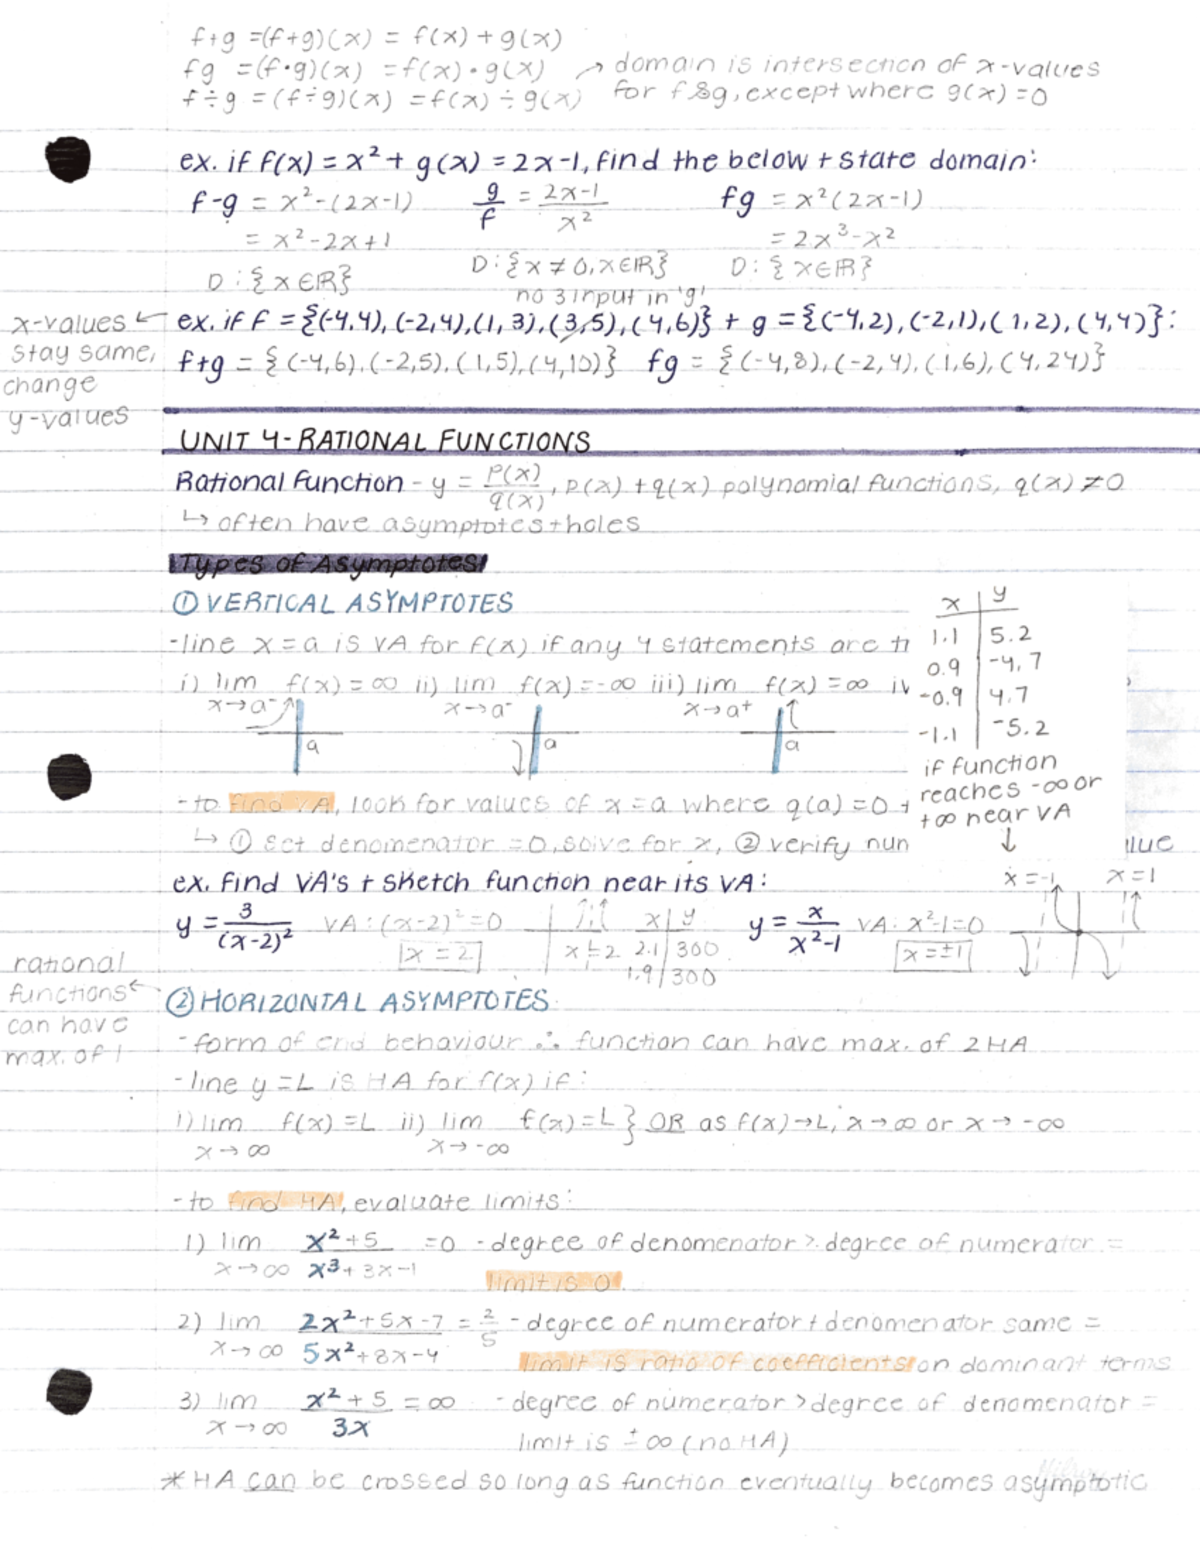 f+g =(f+g)(x) = f(x)+g(x)
fg =(f•g)(x) =f(x)•g(x) → domain is intersection of x-values
f÷g =(f÷g)(x) =f(x)÷g(x) for f&g, except where g(x)=0
ex. if f(x)=x²+ g(x)=2x-1, find the below + state domain:
f-g = x²-(2x-1) g/f = 2x-1/x² fg = x²(2x-1)
= x²-2x+1 = 2x³-x²
D:{x∈ℝ} D:{x≠0,x∈ℝ} D:{x∈ℝ}
no 3 input in 'g'
x-values ← ex. if f = {(-4,4),(-2,4),(1,3),(3,5),(4,6)} + g = {(-4,2),(-2,1),(1,2),(4,4)}:
stay same, f+g = {(-4,6),(-2,5),(1,5),(4,10)} fg = {(-4,8),(-2,4),(1,6),(4,24)}
change
y-values
UNIT 4-RATIONAL FUNCTIONS
Rational Function - y = P(x)/q(x), p(x)+q(x) polynomial functions, q(x)≠0
↳ often have asymptotes+holes
Types of Asymptotes
① VERTICAL ASYMPTOTES
-line x=a is VA for f(x) if any 4 statements are
i) lim f(x)=∞ ii) lim f(x)=-∞ iii) lim f(x)=∞ iv
x→a⁻ x→a⁻ x→a⁺
a a a
x | y
1.1 | 5.2
0.9 | -4.7
-0.9 | 4.7
-1.1 | -5.2
if function
reaches -∞ or
+∞ near VA
↓
-to find VA, look for values of x=a where q(a)=0
↳ ① set denomenator =0, solve for x, ② verify
ex. find VA's + sketch function near its VA:
x=-1 x=1
y = 3/(x-2)² VA:(x-2)²=0 x | y y = x/x²-1 VA: x²-1=0
x=2 x=2 2.1 | 300 x=±1
1.9 | 300
rational
functions←
can have
max. of 1
② HORIZONTAL ASYMPTOTES
-form of end behaviour ∴ function can have max. of 2 HA
-line y=L is HA for f(x) if:
i) lim f(x)=L ii) lim f(x)=L} OR as f(x)→L, x→∞ or x→-∞
x→∞ x→-∞
-to find HA, evaluate limits:
1) lim x²+5/x³+3x-1 =0 -degree of denomenator > degree of numerator =
x→∞ limit is 0
2) lim 2x²+5x-7/5x²+8x-4 = 2/5 -degree of numerator+denomenator same =
x→∞ limit is ratio of coefficients on dominant terms
3) lim x²+5/3x =∞ -degree of numerator >degree of denomenator =
x→∞ limit is ±∞ (no HA)
*HA can be crossed so long as function eventually becomes asymptotic